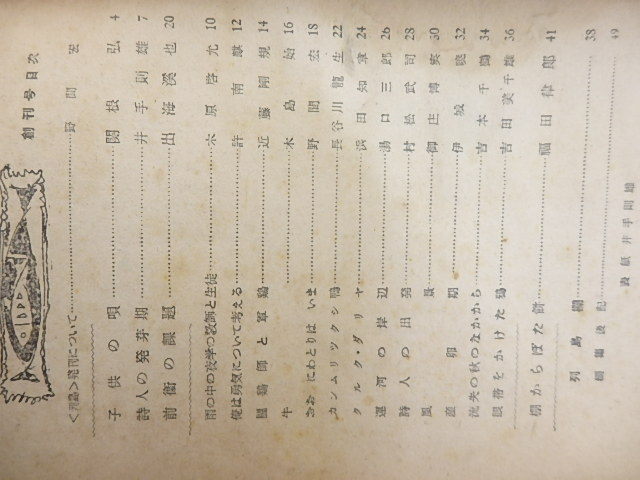 創刊号目次
<列島>発刊について……………野間宏
子供の唄……………関根弘 4
詩人の発芽期……………井手則雄 7
前衛の課題……………出海溪也 20
雨の中の夜学の教師と生徒……………木原啓允 10
俺は勇気について考える……………許南麒 12
闘鶏師と軍鶏……………近藤剛規 14
牛……………木島始 16
おお にわとりは いま……………野間宏 18
カンムリツクシ鴨……………長谷川龍生 22
タルク・ダリヤ……………浜田知章 24
運河の岸辺……………湯口三郎 26
詩人の出発……………村松武司 28
風景……………御庄博実 30
産卵期……………伊城暁 32
流失の秋のなかから……………吉本千鶴 34
眼帯をかけた鶏……………吉田美千雄 36
棚からぼた餅……………福田律郎 41
列島欄……………38
編輯後記……………49
表紙 井手則雄